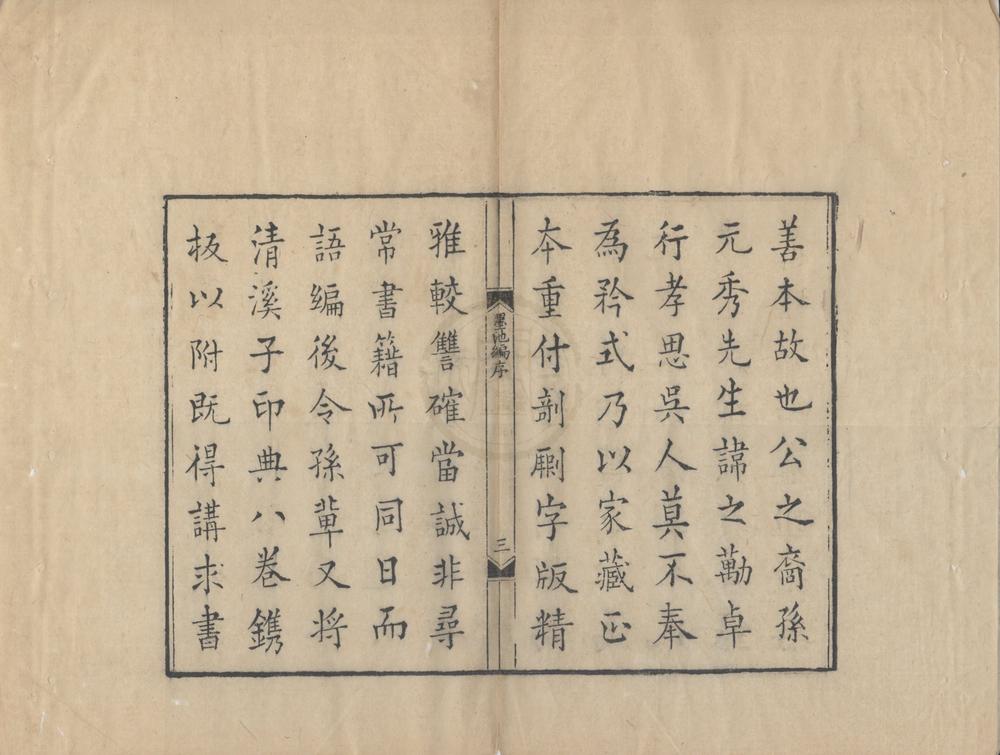 善本故也公之裔孫
元秀先生諱之勱卓
行孝思吳人莫不奉
為矜式乃以家藏正
本重付剞劂字版精
墨池編序
三
雅較讐確當誠非尋
常書籍所可同日而
語編後令孫輩又将
清溪子印典八卷鐫
板以附既得講求書